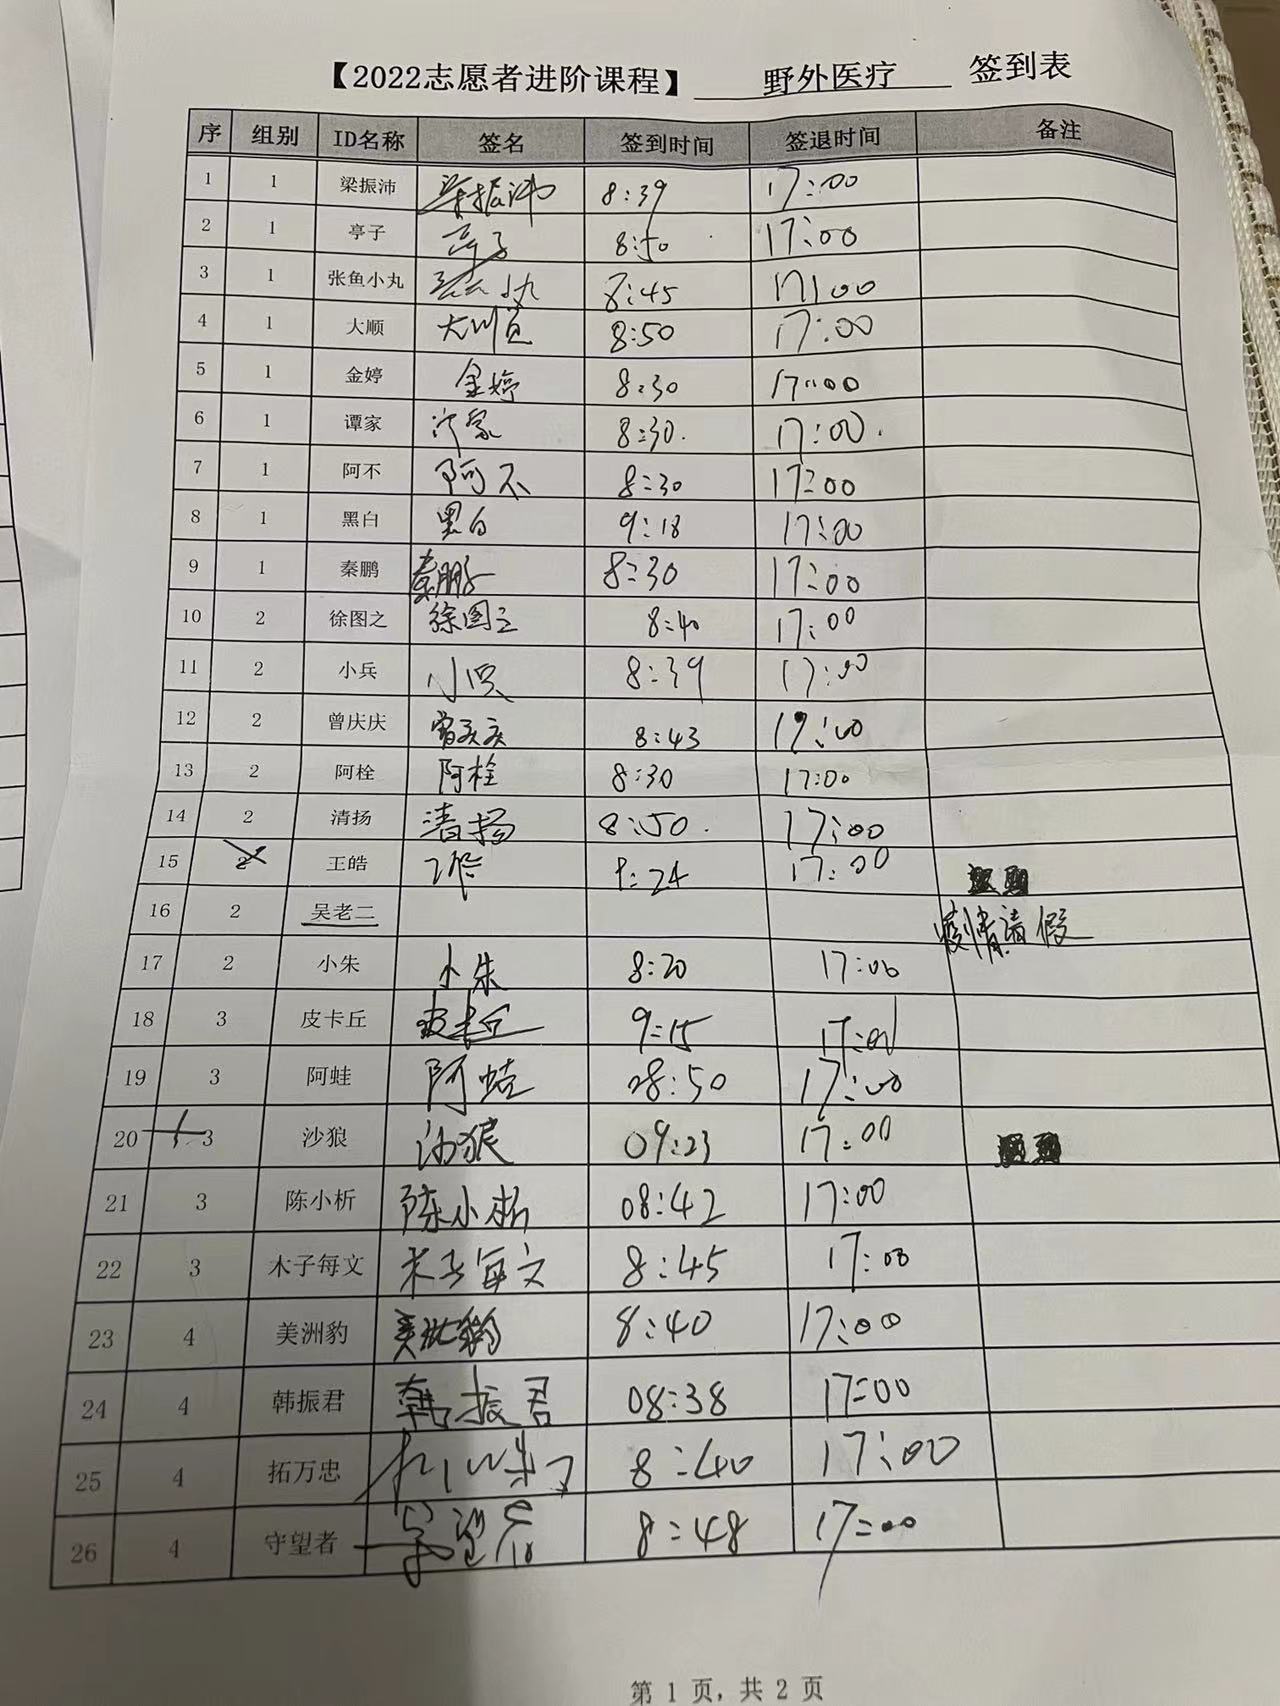 【2022志愿者进阶课程】 野外医疗 签到表
序 组别 ID名称 签名 签到时间 签退时间 备注
1 1 梁振沛 梁振沛 8:39 17:00
2 1 亭子 亭子 8:50 17:00
3 1 张鱼小丸 小丸 8:45 17:00
4 1 大顺 大顺 8:50 17:00
5 1 金婷 金婷 8:30 17:00
6 1 谭家 谭家 8:30. 17:00.
7 1 阿不 阿不 8:30 17:00
8 1 黑白 黑白 9:18 17:00
9 1 秦鹏 秦鹏 8:30 17:00
10 2 徐图之 徐图之 8:40 17:00
11 2 小兵 小兵 8:39 17:00
12 2 曾庆庆 曾庆庆 8:43 17:00
13 2 阿栓 阿栓 8:30 17:00
14 2 清扬 清扬 8:50. 17:00
15 2 王皓 9:24 17:00
16 2 吴老二 疫情请假
17 2 小朱 小朱 8:20 17:00
18 3 皮卡丘 皮卡丘 9:15 17:01
19 3 阿蛙 阿蛙 08:50 17:00
20 3 沙狼 沙狼 09:23 17:00
21 3 陈小析 陈小析 08:42 17:00
22 3 木子每文 木子每文 8:45 17:00
23 4 美洲豹 美洲豹 8:40 17:00
24 4 韩振君 韩振君 08:38 17:00
25 4 拓万忠 8:40 17:00
26 4 守望者 守望者 8:48 17:00
第 1 页, 共 2 页